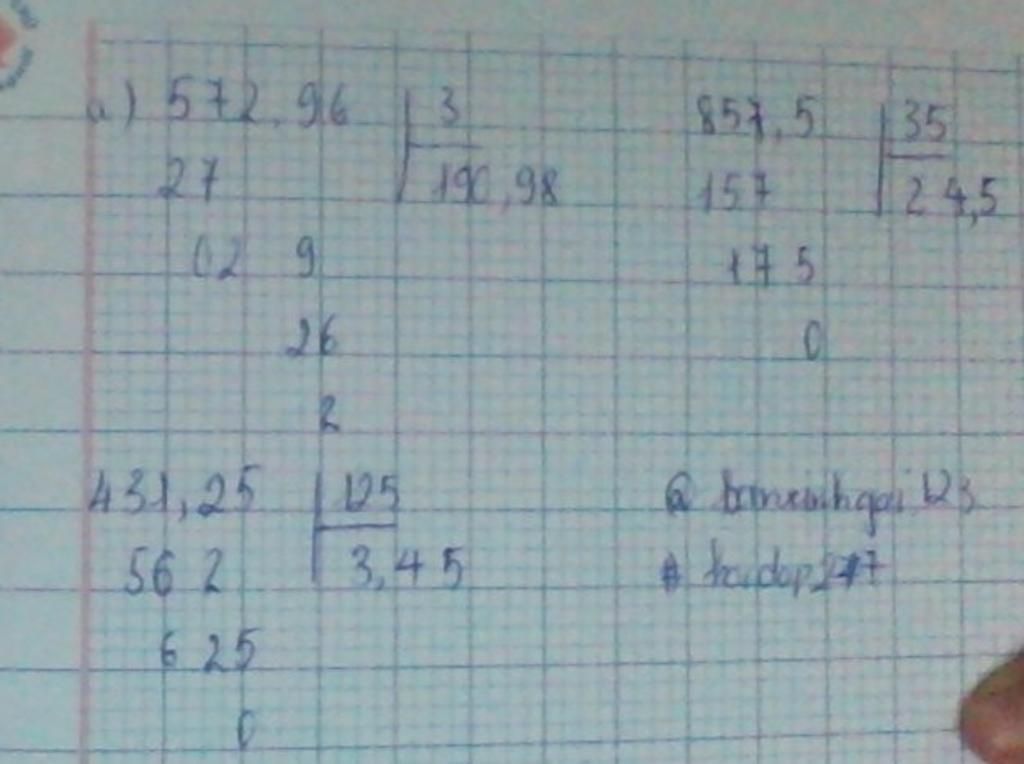 a) 572,96 3 857,5 35
27 190,98 157 24,5
02 9 17 5
26 0
2
431,25 125
56 2 3,45 # hoidap247
6 25
0